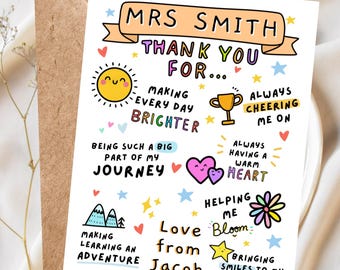 MRS SMITH
THANK YOU
FOR...
MAKING
EVERY DAY
BRIGHTER
ALWAYS
CHEERING
ME ON
BEING SUCH A BIG
PART OF MY
JOURNEY
ALWAYS
HAVING A
WARM
HEART
HELPING
ME
Bloom
MAKING
LEARNING AN
ADVENTURE
Love
from
Jacob
BRINGING
SMILES TO MY